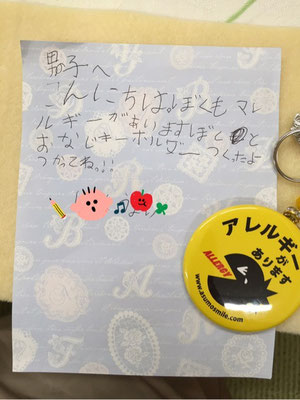 男子へ
こんにちは。ぼくも アレ
ルギーがありますぼくと
おなじキーホルダーつくったよ
つかってね。!!
より
アレルギー
が
あります
ALLERGY
www.asumosmile.com